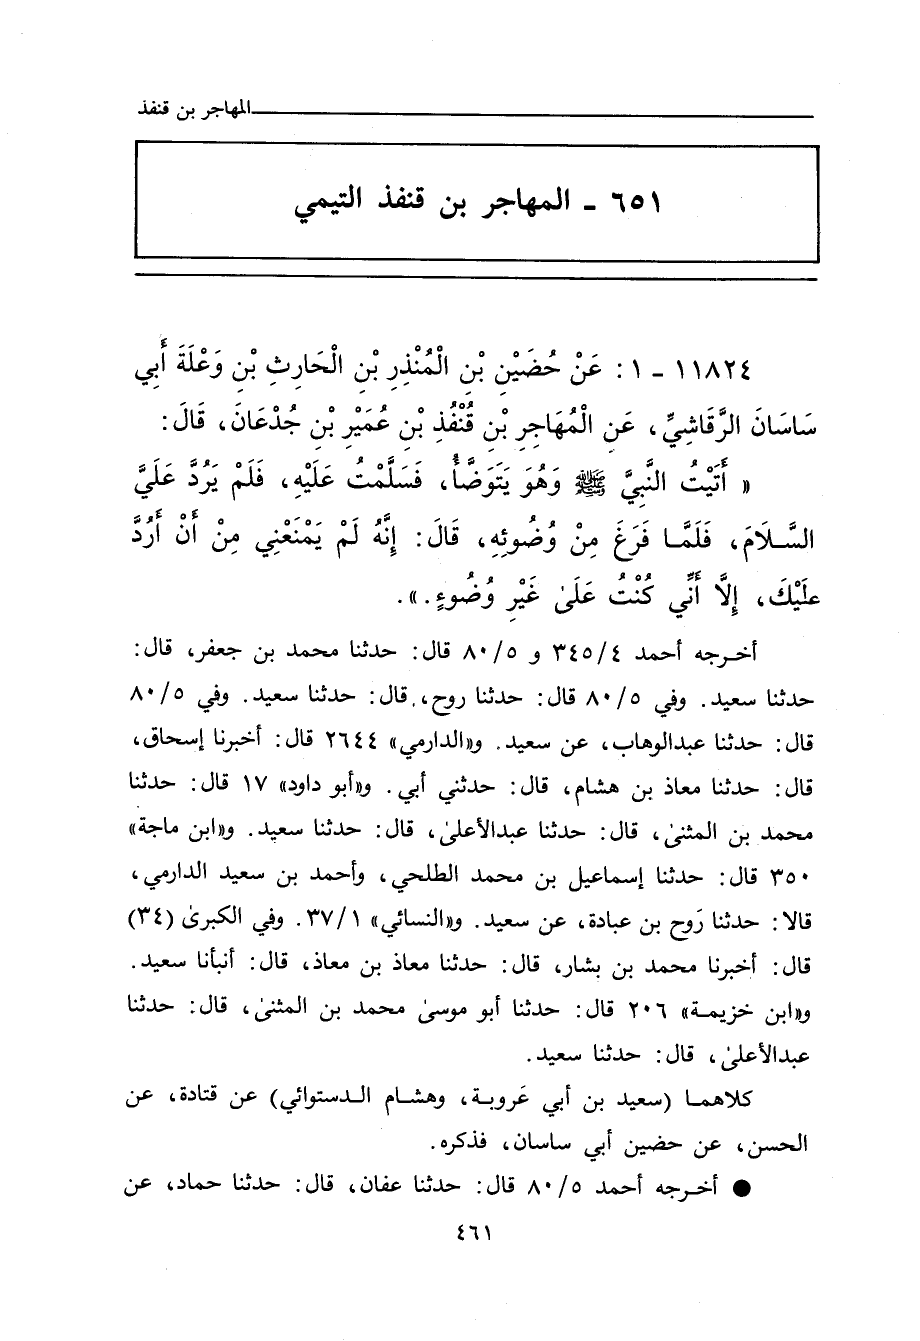 المهاجر بن قنفذ
٦٥١ - المهاجر بن قنفذ التيمي
١١٨٢٤ - ١ : عَنْ حُضَيْنِ بْنِ الْمُنْذِرِ بْنِ الْحَارِثِ بْنِ وَعْلَةَ أَبِي
سَاسَانَ الرَّقَاشِيِّ، عَنِ الْمُهَاجِرِ بْنِ قُنْفُذِ بْنِ عُمَيْرِ بْنِ جُدْعَانَ، قَالَ:
« أَتَيْتُ النَّبِيَّ ﷺ وَهُوَ يَتَوَضَّأُ، فَسَلَّمْتُ عَلَيْهِ، فَلَمْ يَرُدَّ عَلَيَّ
السَّلَامَ، فَلَمَّا فَرَغَ مِنْ وُضُوئِهِ، قَالَ: إِنَّهُ لَمْ يَمْنَعْنِي مِنْ أَنْ أَرُدَّ
علَيْكَ، إِلَّا أَنِّي كُنْتُ عَلَىٰ غَيْرِ وُضُوءٍ.».
أخرجه أحمد ٣٤٥/٤ و ٨٠/٥ قال: حدثنا محمد بن جعفر، قال:
حدثنا سعيد. وفي ٨٠/٥ قال: حدثنا روح، قال: حدثنا سعيد. وفي ٨٠/٥
قال: حدثنا عبدالوهاب، عن سعيد. و«الدارمي» ٢٦٤٤ قال: أخبرنا إسحاق،
قال: حدثنا معاذ بن هشام، قال: حدثني أبي. و«أبو داود» ١٧ قال: حدثنا
محمد بن المثنىٰ، قال: حدثنا عبدالأعلىٰ، قال: حدثنا سعيد. و«ابن ماجة»
٣٥٠ قال: حدثنا إسماعيل بن محمد الطلحي، وأحمد بن سعيد الدارمي،
قالا: حدثنا رَوح بن عبادة، عن سعيد. و«النسائي» ٣٧/١. وفي الكبرىٰ (٣٤)
قال: أخبرنا محمد بن بشار، قال: حدثنا معاذ بن معاذ، قال: أنبأنا سعيد.
و«ابن خزيمة» ٢٠٦ قال: حدثنا أبو موسىٰ محمد بن المثنىٰ، قال: حدثنا
عبدالأعلىٰ، قال: حدثنا سعيد.
كلاهما (سعيد بن أبي عَروبة، وهشام الدستوائي) عن قتادة، عن
الحسن، عن حضين أبي ساسان، فذكره.
● أخرجه أحمد ٨٠/٥ قال: حدثنا عفان، قال: حدثنا حماد، عن
٤٦١